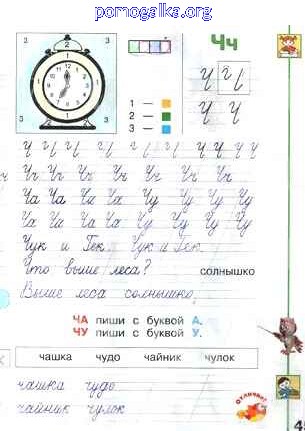 pomogalka.org
3 1 3
2
3 3
Чч
1 —
2 —
3 —
Ч Ч Ч
Ч Ч
Ч Ч Ч Ч Ч Ч Ч Ч Ч Ч
Чч Чч Чч Чч Чч Чч Чч
Ча Ча Ча Ча Чу Чу Чу Чу
Ча Ча Ча Ча Чу Чу Чу Чу
Чук и Гек. Чук и Гек.
Что выше леса? солнышко
Выше леса солнышко.
ЧА пиши с буквой А.
ЧУ пиши с буквой У.
чашка чудо чайник чулок
чашка чудо
чайник чулок
Отлично!
4